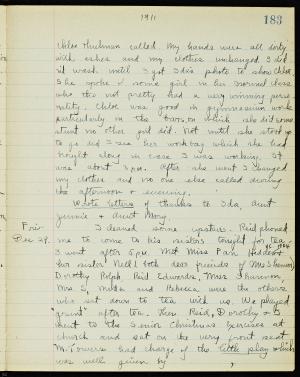 1911
183
Chloe Thurlman called. My hands were all dirty
with ashes and my clothes unchanged. I did
n't wash until I got Ida's photo to show Chloe.
She spoke of some girl in her normal class
who tho not pretty had a very winning perso-
nality. Chloe was good in gymnasium work
particularly on the on which she did some
stunt no other girl did. Not until she stood up
to go did I see her workbag which she had
brought along in case I was working. It
was about 3 P.M. After she went I changed
my clothes and no one else called during
the afternoon & evening.
Wrote letters of thanks to Ida, Aunt
Jennie & Aunt Mary.
Fri. I cleaned some upstairs. Reid phoned
Dec 29. me to come to his sisters tonight for tea.
I went after 5 P.M. Met Miss Fan
her sister Nell both dear friends of Mrs Shannon,
Dorothy Rolph, Reid Edwards, Miss Shannon,
Mrs S, and Rebecca were the others
who sat down to tea with us. We played
"grunt" after tea. Then Reid, Dorothy & I
went to the Senior Christmas Exercises at
church and sat on the very front seat
M. Towers had charge of the little play which
was well given by